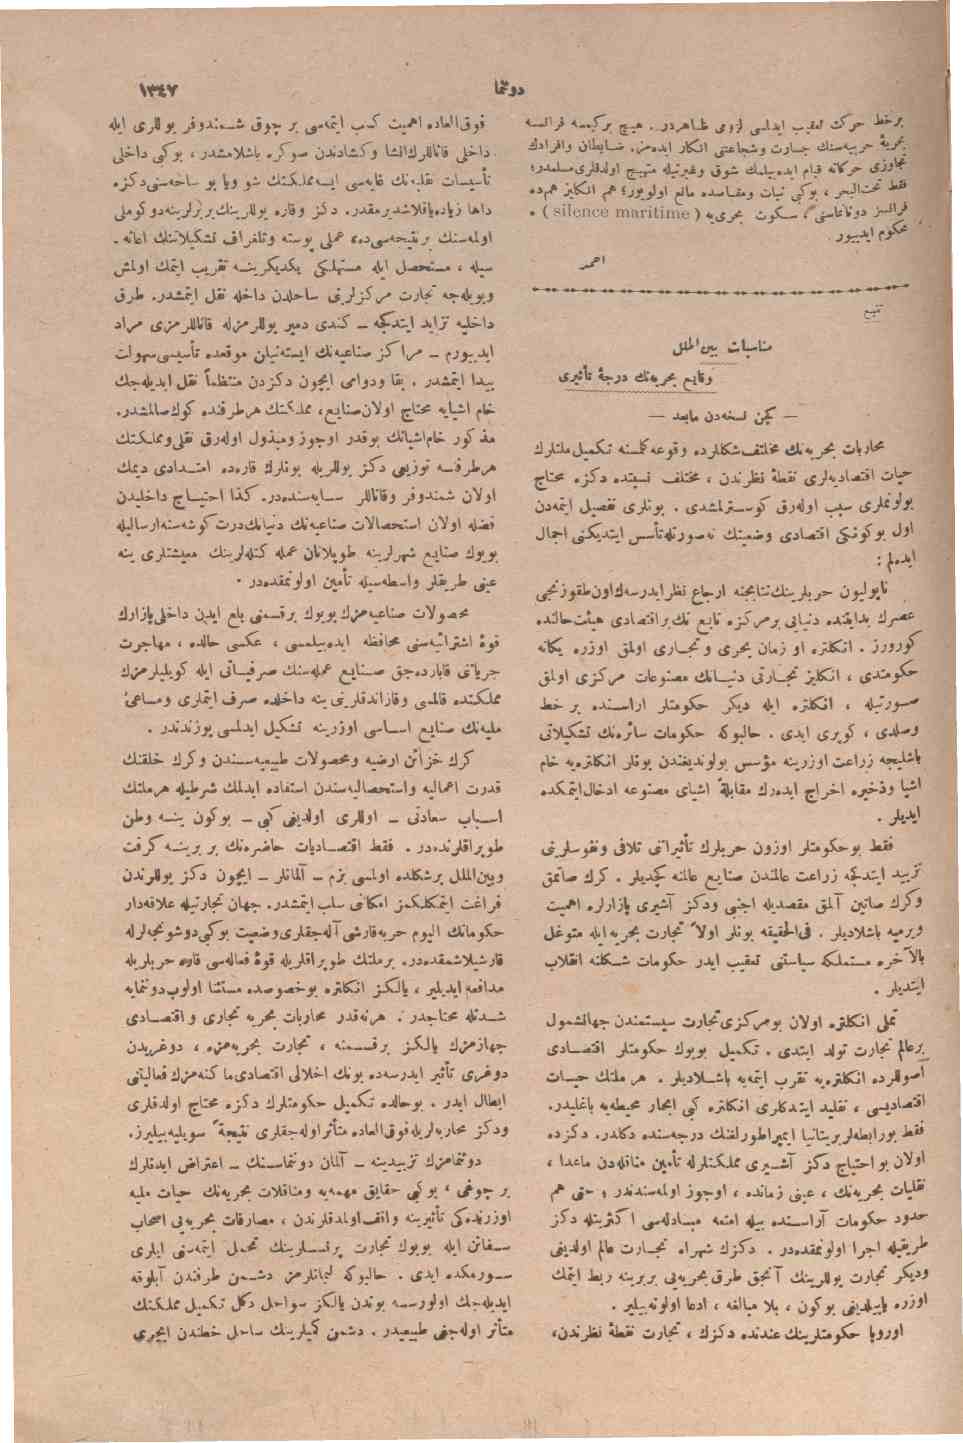 دوننما
١٣٤٧
برخط حركت تعقيب ايدلمسى لزومى ظاهردر. هيچ بركيمسه فرانسه
بحريهٔ حربيه‌سنك جسارت وشجاعتنى انكار ايده‌مز. ضابطان وافرادك
تجاوزى حركاته قيام ايده‌بيلمك شوق وغيرتيله متهيج اولدقلرى مسلمدر؛
فقط تحت‌البحر، بوكبى نيات ومقاصده مانع اولويور؛ هم انكليز هم‌ده
فرانسز دوننماسنى، سكوت بحرى‌يه (silence maritime)
محكوم ايدييور.
احمد
تتبع
مناسبات بين‌الملل
وقايع بحريه‌نك درجهٔ تأثيرى
— كچن نسخه‌دن مابعد —
محاربات بحريه‌نك مختلف شكللرده وقوعه كلمسنه تكميل ملتلرك
حيات اقتصاديه‌لرى نقطهٔ نظرندن، مختلف نسبتده دكزه محتاج
بولونملرى سبب اوله‌رق كوسترلمشدى. بونلرى تفصيل ايتمه‌دن
اول بوكونكى اقتصادى وضعيتك نه‌صورتله تأسس ايتديكنى اجمال
ايده‌لم:
ناپوليون حربلرينك نتايجنه ارجاع نظر ايدرسه‌ك اون طقوزنجى
عصرك بدايتنده دنيايى برمركزه تابع تك براقتصادى هيئت حالنده
كورورز. انكلتره او زمان بحرى وتجارى اولمق اوزره يكانه
حكومتدى، انكليز تجارتى دنيانك مصنوعات مركزى اولمق
صورتيله، انكلتره ايله ديكر حكومتلر اراسنده بر خط
وصلدى، كوپرى ايدى. حالبوكه حكومات سائره‌نك تشكيلاتى
باشليجه زراعت اوزرينه مؤسس بولونديغندن بونلر انكلتره‌يه خام
اشيا وذخيره اخراج ايده‌رك مقابلةً اشياى مصنوعه ادخال ايتمكده
ايديلر.
فقط بوحكومتلر اوزون حربلرك تأثيراتنى تلافى ونفوسلرينى
تزييد ايتدكجه زراعت عالمندن صنايع عالمنه كچديلر. كرك صاتمق
وكرك صاتين آلمق مقصديله اجنبى ودكز آشيرى پازارلره اهميت
ويرميه باشلاديلر. فى‌الحقيقه بونلر اولاً تجارت بحريه ايله متوغل
بالآخره مستملكه سياستنى تعقيب ايدر حكومات شكلنه انقلاب
ايتديلر.
تملى انكلتره اولان بومركزى تجارت سيستمندن جهانشمول
برعالم تجارت تولد ايتدى. تكميل بويوك حكومتلر اقتصادى
اصوللرده انكلتره‌يه تقرب ايتمه‌يه باشلاديلر. هر ملتك حيات
اقتصاديسى، تقليد ايتدكلرى انكلتره كبى ابحار محيطه‌يه باغليدر.
فقط بورابطه‌لر بريتانيا ايمپراطورلغنك درجه‌سنده دكلدر. دكزده
اولان بو احتياج دكز آشيرى مملكتلرله تأمين مناقله‌دن ماعدا،
نقليات بحريه‌نك، عينى زمانده، اوجوز اولمه‌سندندر؛ حتى هم
حدود حكومات آراسنده بيله امتعه مبادله‌سى اكثريتله دكز
طريقيله اجرا اولونمقده‌در. دكزك شهراه تجارت عالم اولديغنى
وديكر تجارت يوللرينك آنجق طرق بحريه‌يى بربرينه ربط ايتمك
اوزره ياپيلديغنى بوكون، بلا مبالغه، ادعا اولونه‌بيلير.
اوروپا حكومتلرينك عندنده دكزك، تجارت نقطهٔ نظرندن،
فوق‌العاده اهميت كسب ايتمه‌سى بر چوق شمندوفر يوللرى ايله
داخلى قاناللرك انشا وكشادندن صوكره باشلامشدر، بوكبى داخلى
تأسيسات نقليه‌نك غايه‌سى ايسه مملكتك شو ويا بو ساحه‌سنى دكزه
داها زياده ياقلاشديرمقدر. دكز وقاره يوللرينك بربرلرينه دوكوملى
اولمه‌سنك برنتيجه‌سى‌ده، عملى پوسته وتلغراف تشكيلاتنك اعانه‌
سيله، مستحصل ايله مستهلكى يكديكرينه تقريب ايتمك اولمش
وبويله‌جه تجارت مركزلرينى ساحلدن داخله نقل ايتمشدر. طرق
داخليه تزايد ايتدكجه – كندى دمير يوللرمزله قاناللرمزى مراد
ايدييورم – مراكز صناعيه‌نك ايسته‌نيلن موقعده تأسيسى سهولت
پيدا ايتمشدر. بقا ودوامى ايچون دكزدن منتظماً نقل ايديله‌جك
خام اشيايه محتاج اولان صنايع، مملكتك هرطرفنده كوك صالمشدر.
مذكور خام‌اشيانك بوقدر اوجوز ومبذول اوله‌رق نقلى ومملكتك
هرطرفنه توزيعى دكز يوللريله بونلرك قاره‌ده امتدادى ديمك
اولان شمندوفر وقاناللر سايه‌سنده‌در. كذا احتياج داخليدن
فضله اولان استحصالات صناعيه‌نك دنيانك درت كوشه‌سنه ارساليله
بويوك صنايع شهرلرينه طوپلانان عمله كتله‌لرينك معيشتلرى ينه
عينى طريقلر واسطه‌سيله تأمين اولونمقده‌در.
محصولات صناعيه‌مزك بويوك برقسمنى بلع ايدن داخلى پازارك
قوهٔ اشترائيه‌سنى محافظه ايده‌بيلمسى، عكسى حالده، مهاجرت
جريانى قاباره‌جق صنايع عمله‌سنك صرفياتى ايله كويليلرمزك
مملكتده قالمسى وقازاندقلرينى ينه داخلده صرف ايتملرى ومساعئ
مليه‌نك صنايع اساسى اوزرينه تشكيل ايدلمسى يوزندندر.
كرك خزائن ارضيه ومحصولات طبيعيه‌سندن وكرك خلقنك
قدرت اعماليه واستحصاليه‌سندن استفاده ايدلمك شرطيله هرملتك
اسباب سعادتى – اوللرى اولديغى كبى – بوكون ينه وطن
طوپراقلرنده‌در. فقط اقتصاديات حاضره‌نك بر برينه كرفت
وبين‌الملل برشكلده اولمسى بزم – آلمانلر – ايچون دكز يوللرندن
فراغت ايتمكلكمز امكانى سلب ايتمشدر. جهان تجارتيله علاقه‌دار
حكوماتك اليوم حربه‌قارشى آله‌جقلرى وضعيت بوكبى دوشونجه‌لرله
قارشيلاشمقده‌در. برملتك طوپراقلريله قوهٔ فعاله‌سى قاره حربلريله
مدافعه ايديلير، يالكز انكلتره بوخصوصده مستثنا اولوب دوننمايه
شدتله محتاجدر. هرنه‌قدر محاربات بحريه تجارى واقتصادى
جهازمزك يالكز برقسمنه، تجارت بحريه‌مزه، دوغريدن
دوغرى تأثير ايدرسه‌ده بونك اخلالى اقتصادى ماكنه‌مزك فعاليتنى
ابطال ايدر. بوحالده تكميل حكومتلرك دكزه محتاج اولدقلرى
ودكز محاربه‌لريله فوق‌العاده متأثر اوله‌جقلرى نتيجةً سويليه‌بيليرز.
دوننمامزك تزييدينه – آلمان دوننماسنك – اعتراض ايدنلرك
بر چوغى، بوكبى حقايق مهمه‌يه ومناقلات بحريه‌نك حيات مليه
اوزرنده‌كى تأثيرينه واقف اولمدقلرندن، مصارفات بحريه‌يى اصحاب
سفائن ايله بويوك تجارت پرنسلرينك تحمل ايتمه‌سنى ايلرى
سورمكده ايدى. حالبوكه ليمانلرمز دشمن طرفندن آبلوقه
ايديله‌جك اولورسه بوندن يالكز سواحل دكل تكميل مملكتك
متأثر اوله‌جغى طبيعيدر. دشمن كميلرينك ساحل خطندن ايچرى